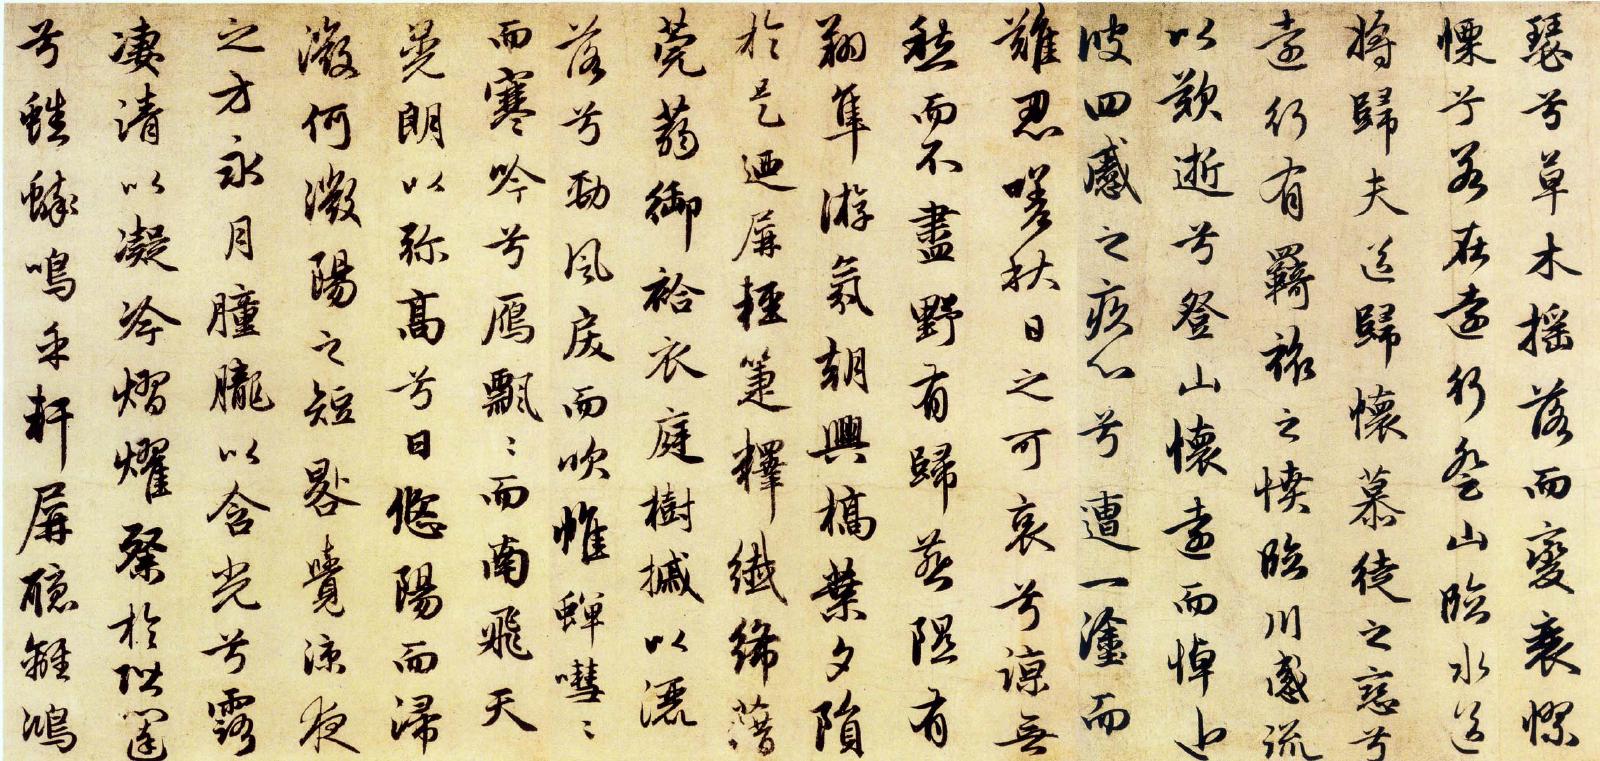 瑟兮草木搖落而變衰憀
慄兮若在遠行登山臨水送
將歸夫送歸懷慕徒之戀兮
遠行有羈旅之憤臨川感流
以歎逝兮登山懷遠而悼近
彼四慼之疚心兮遭一塗而
難忍嗟秋日之可哀兮諒無
愁而不盡野有歸燕隰有
翔隼游氛朝興槁葉夕隕
於是迺屏輕箑釋纖絺藉
莞蒻御袷衣庭樹摵以灑
落兮勁風戾而吹帷蟬嘒〻
而寒吟兮鴈飄〻而南飛天
晃朗以彌高兮日悠陽而浸
微何微陽之短晷覺涼夜
之方永月朣朧以含光兮露
淒清以凝冷熠燿粲於階闥
兮蟋蟀鳴乎軒屏聽離鴻